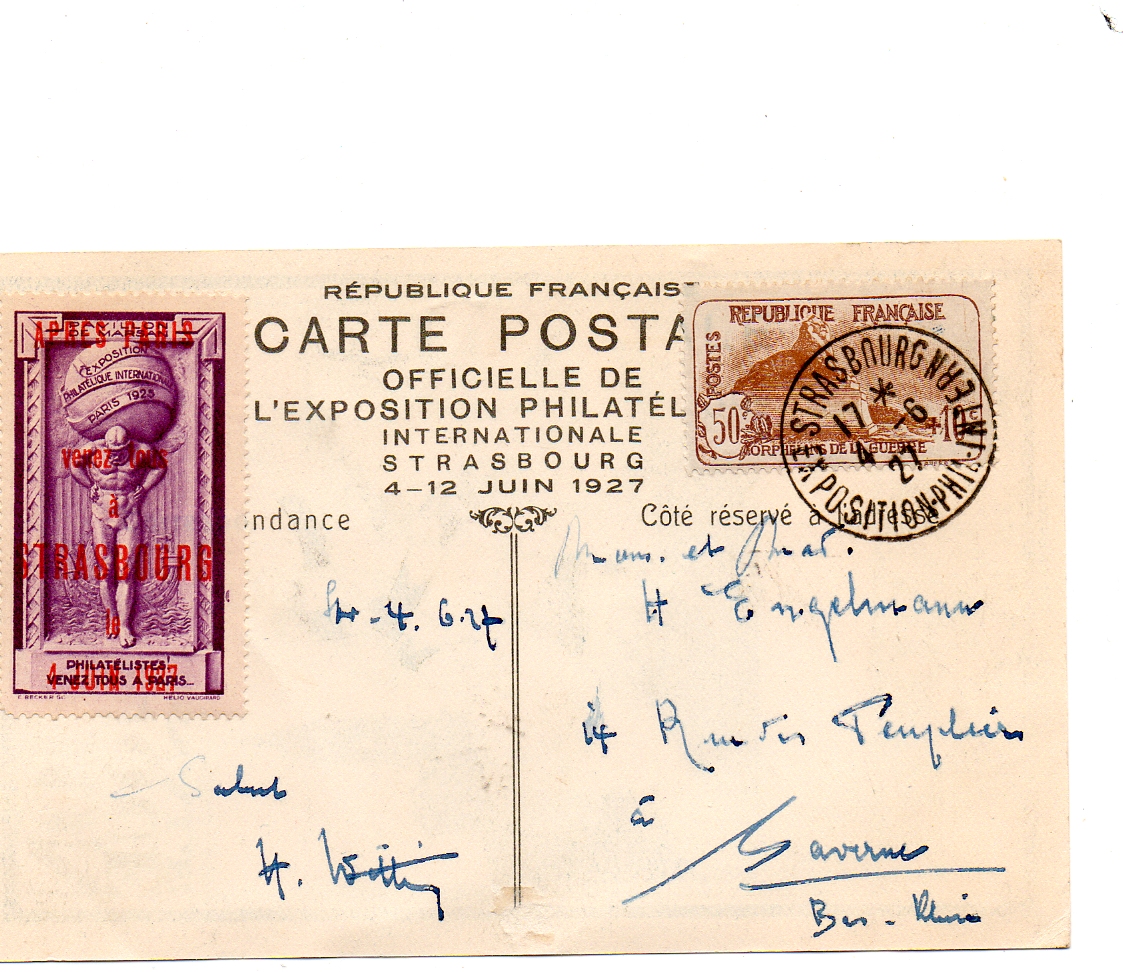 RÉPUBLIQUE FRANÇAIS
CARTE POSTA
OFFICIELLE DE
L'EXPOSITION PHILATÉL
INTERNATIONALE
STRASBOURG
4-12 JUIN 1927
ndance
Côté réservé à l'adresse
APRÈS PARIS
EXPOSITION
PHILATÉLIQUE INTERNATIONALE
PARIS 1925
venez tous
à
STRASBOURG
le
4 JUIN 1927
PHILATÉLISTES!
VENEZ TOUS A PARIS...
HELIO VAUGIRARD
REPUBLIQUE FRANÇAISE
POSTES
50c +10c
ORPHELINS DE LA GUERRE
STRASBOURG
17 *
4 -6
27
EXPOSITION·PHIL·INTERN
Mons. et Mad.
H Engelmann
14 Rue des Peupliers
à
Saverne
Bas-Rhin
Str-4.6.27
Salut
H.